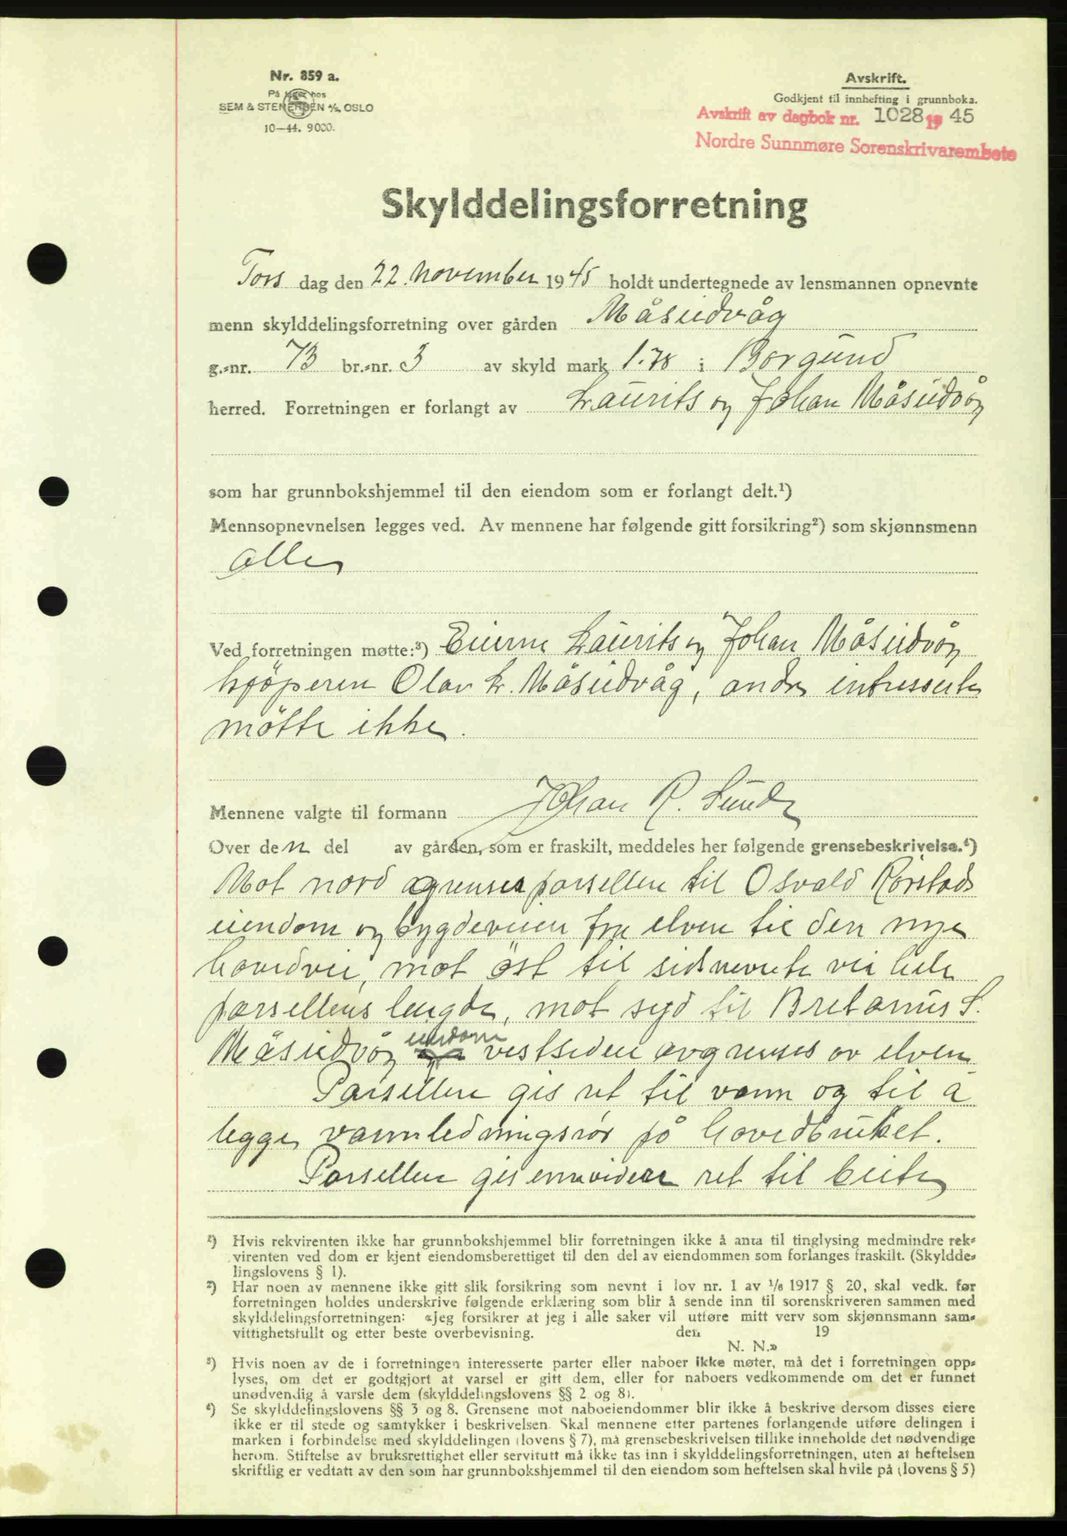 Nr. 859 a.
På lager hos
SEM & STENERSEN A/S, OSLO
10—44. 9000.
Avskrift.
Godkjent til innhefting i grunnboka.
Avskrift av dagbok nr. 1028 19 45
Nordre Sunnmøre Sorenskrivarembete
Skylddelingsforretning
Tors dag den 22. november 1945 holdt undertegnede av lensmannen opnevnte
menn skylddelingsforretning over gården Måseidvåg
g.-nr. 73 br.-nr. 3 av skyld mark 1.78 i Borgund
herred. Forretningen er forlangt av Laurits og Johan Måseidvåg
som har grunnbokshjemmel til den eiendom som er forlangt delt.¹)
Mennsopnevnelsen legges ved. Av mennene har følgende gitt forsikring²) som skjønnsmenn
alle
Ved forretningen møtte:³) Eierne Laurits og Johan Måseidvåg
kjøperen Olav L. Måseidvåg, andre interesserte
møtte ikke.
Mennene valgte til formann Johan R. Sunde
Over den del av gården, som er fraskilt, meddeles her følgende grensebeskrivelse.⁴)
Mot nord grenser parsellen til Osvald Rørstads
eiendom og bygdeveien fra elven til den nye
hovedvei, mot øst til sidsnevnte vei hele
parsellens lengde, mot syd til Bretanus S.
Måseidvåg eiendom vestsiden avgrenses av elven.
Parsellen gis ret til vann og til å
legge vannledningsrør på hovedbruket.
Parsellen gis ennvidere ret til beite
¹) Hvis rekvirenten ikke har grunnbokshjemmel blir forretningen ikke å anta til tinglysing medmindre rek-
virenten ved dom er kjent eiendomsberettiget til den del av eiendommen som forlanges fraskilt. (Skyldde-
lingslovens § 1).
²) Har noen av mennene ikke gitt slik forsikring som nevnt i lov nr. 1 av 1/6 1917 § 20, skal vedk. før
forretningen holdes underskrive følgende erklæring som blir å sende inn til sorenskriveren sammen med
skylddelingsforretningen: «Jeg forsikrer at jeg i alle saker vil utføre mitt verv som skjønnsmann sam-
vittighetsfullt og etter beste overbevisning. den 19
N. N.»
³) Hvis noen av de i forretningen interesserte parter eller naboer ikke møter, må det i forretningen opp-
lyses, om det er godtgjort at varsel er gitt dem, eller for naboers vedkommende om det er funnet
unødvendig å varsle dem (skylddelingslovens §§ 2 og 8).
⁴) Se skylddelingslovens §§ 3 og 8. Grensene mot naboeiendommer blir ikke å beskrive dersom disses eiere
ikke er til stede og samtykker i beskrivelsen. Skal mennene etter partenes forlangende utføre delingen i
marken i forbindelse med skylddelingen (lovens § 7), må grensebeskrivelsen tillike inneholde det nødvendige
herom. Stiftelse av bruksrettighet eller servitutt må ikke tas inn i skylddelingsforretningen, uten at heftelsen
skriftlig er vedtatt av den som har grunnbokshjemmel til den eiendom som heftelsen skal hvile på (lovens § 5)